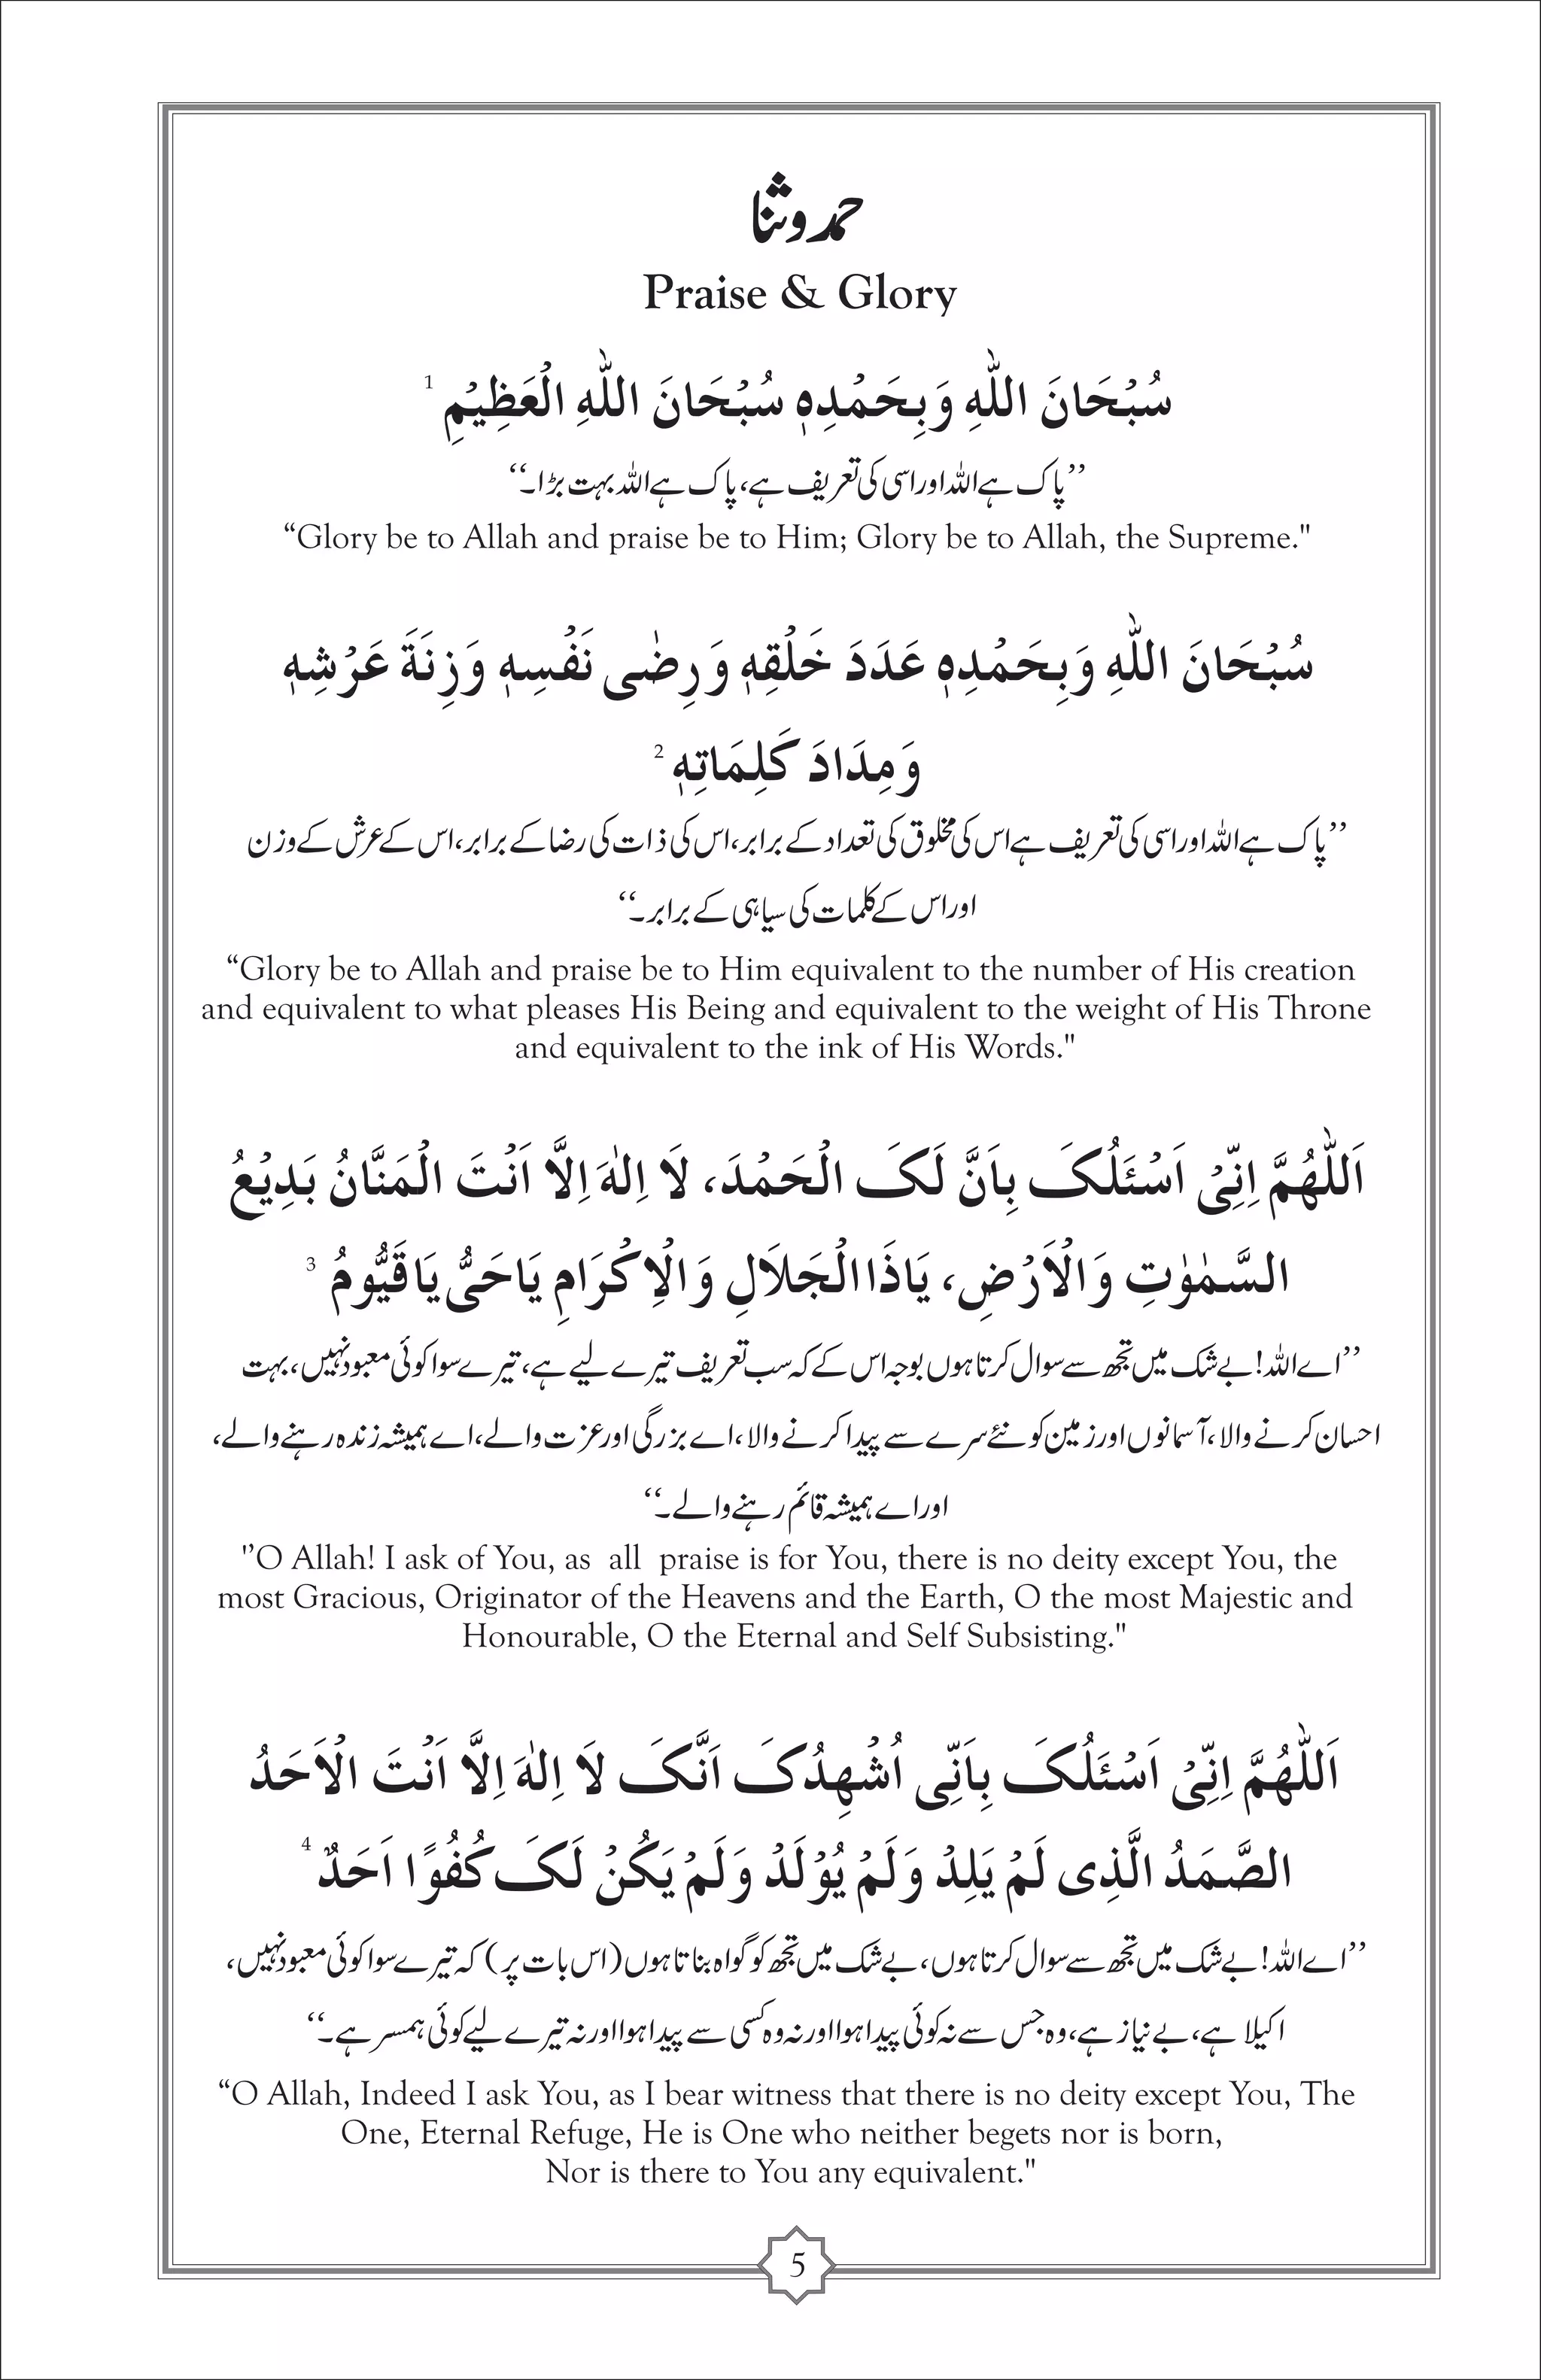 حمد وثنا
Praise & Glory
سُبْحَانَ اللّٰهِ وَبِحَمْدِهٖ سُبْحَانَ اللّٰهِ الْعَظِيْمِ 1
’’پاک ہے اللہ اور اسی کی تعریف ہے، پاک ہے اللہ بہت بڑا۔‘‘
“Glory be to Allah and praise be to Him; Glory be to Allah, the Supreme."
سُبْحَانَ اللّٰهِ وَبِحَمْدِهٖ عَدَدَ خَلْقِهٖ وَرِضٰى نَفْسِهٖ وَزِنَةَ عَرْشِهٖ
وَمِدَادَ كَلِمَاتِهٖ 2
’’پاک ہے اللہ اور اسی کی تعریف ہے اس کی مخلوق کی تعداد کے برابر، اس کی ذات کی رضا کے برابر، اس کے عرش کے وزن
اور اس کے کلمات کی سیاہی کے برابر۔‘‘
“Glory be to Allah and praise be to Him equivalent to the number of His creation
and equivalent to what pleases His Being and equivalent to the weight of His Throne
and equivalent to the ink of His Words."
اَللّٰهُمَّ اِنِّىْ اَسْئَلُکَ بِاَنَّ لَکَ الْحَمْدَ، لَا اِلٰهَ اِلَّا اَنْتَ الْمَنَّانُ بَدِيْعُ
السَّمٰوٰتِ وَالْاَرْضِ، يَاذَا الْجَلَالِ وَالْاِكْرَامِ يَاحَىُّ يَاقَيُّومُ 3
’’اے اللہ! بے شک میں تجھ سے سوال کرتا ہوں بوجہ اس کے کہ سب تعریف تیرے لیے ہے، تیرے سوا کوئی معبود نہیں، بہت
احسان کرنے والا، آسمانوں اور زمین کو نئے سرے سے پیدا کرنے والا، اے بزرگی اور عزت والے، اے ہمیشہ زندہ رہنے والے،
اور اے ہمیشہ قائم رہنے والے۔‘‘
"O Allah! I ask of You, as all praise is for You, there is no deity except You, the
most Gracious, Originator of the Heavens and the Earth, O the most Majestic and
Honourable, O the Eternal and Self Subsisting."
اَللّٰهُمَّ اِنِّىْ اَسْئَلُکَ بِاَنِّى اُشْهِدُکَ اَنَّکَ لَا اِلٰهَ اِلَّا اَنْتَ الْاَحَدُ
الصَّمَدُ الَّذِى لَمْ يَلِدْ وَلَمْ يُوْلَدْ وَلَمْ يَكُنْ لَکَ كُفُوًا اَحَدٌ 4
’’اے اللہ! بے شک میں تجھ سے سوال کرتا ہوں، بے شک میں تجھ کو گواہ بناتا ہوں (اس بات پر) کہ تیرے سوا کوئی معبود نہیں،
اکیلا ہے، بے نیاز ہے، وہ جس سے نہ کوئی پیدا ہوا اور نہ وہ کسی سے پیدا ہوا اور نہ تیرے لیے کوئی ہمسر ہے۔‘‘
“O Allah, Indeed I ask You, as I bear witness that there is no deity except You, The
One, Eternal Refuge, He is One who neither begets nor is born,
Nor is there to You any equivalent."
5